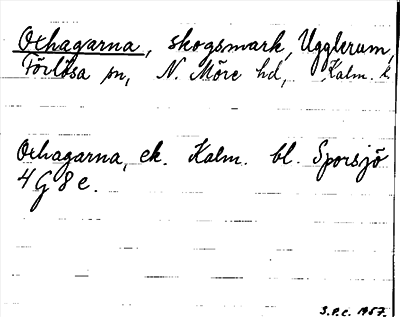 Ochagarna, skogsmark, Ugglerum,
Förlösa sn, N. Möre hd, Kalm. l.
Ochagarna, ek. Kalm. bl. Sporsjö
4 G 8 e.
S.P.C. 1957.